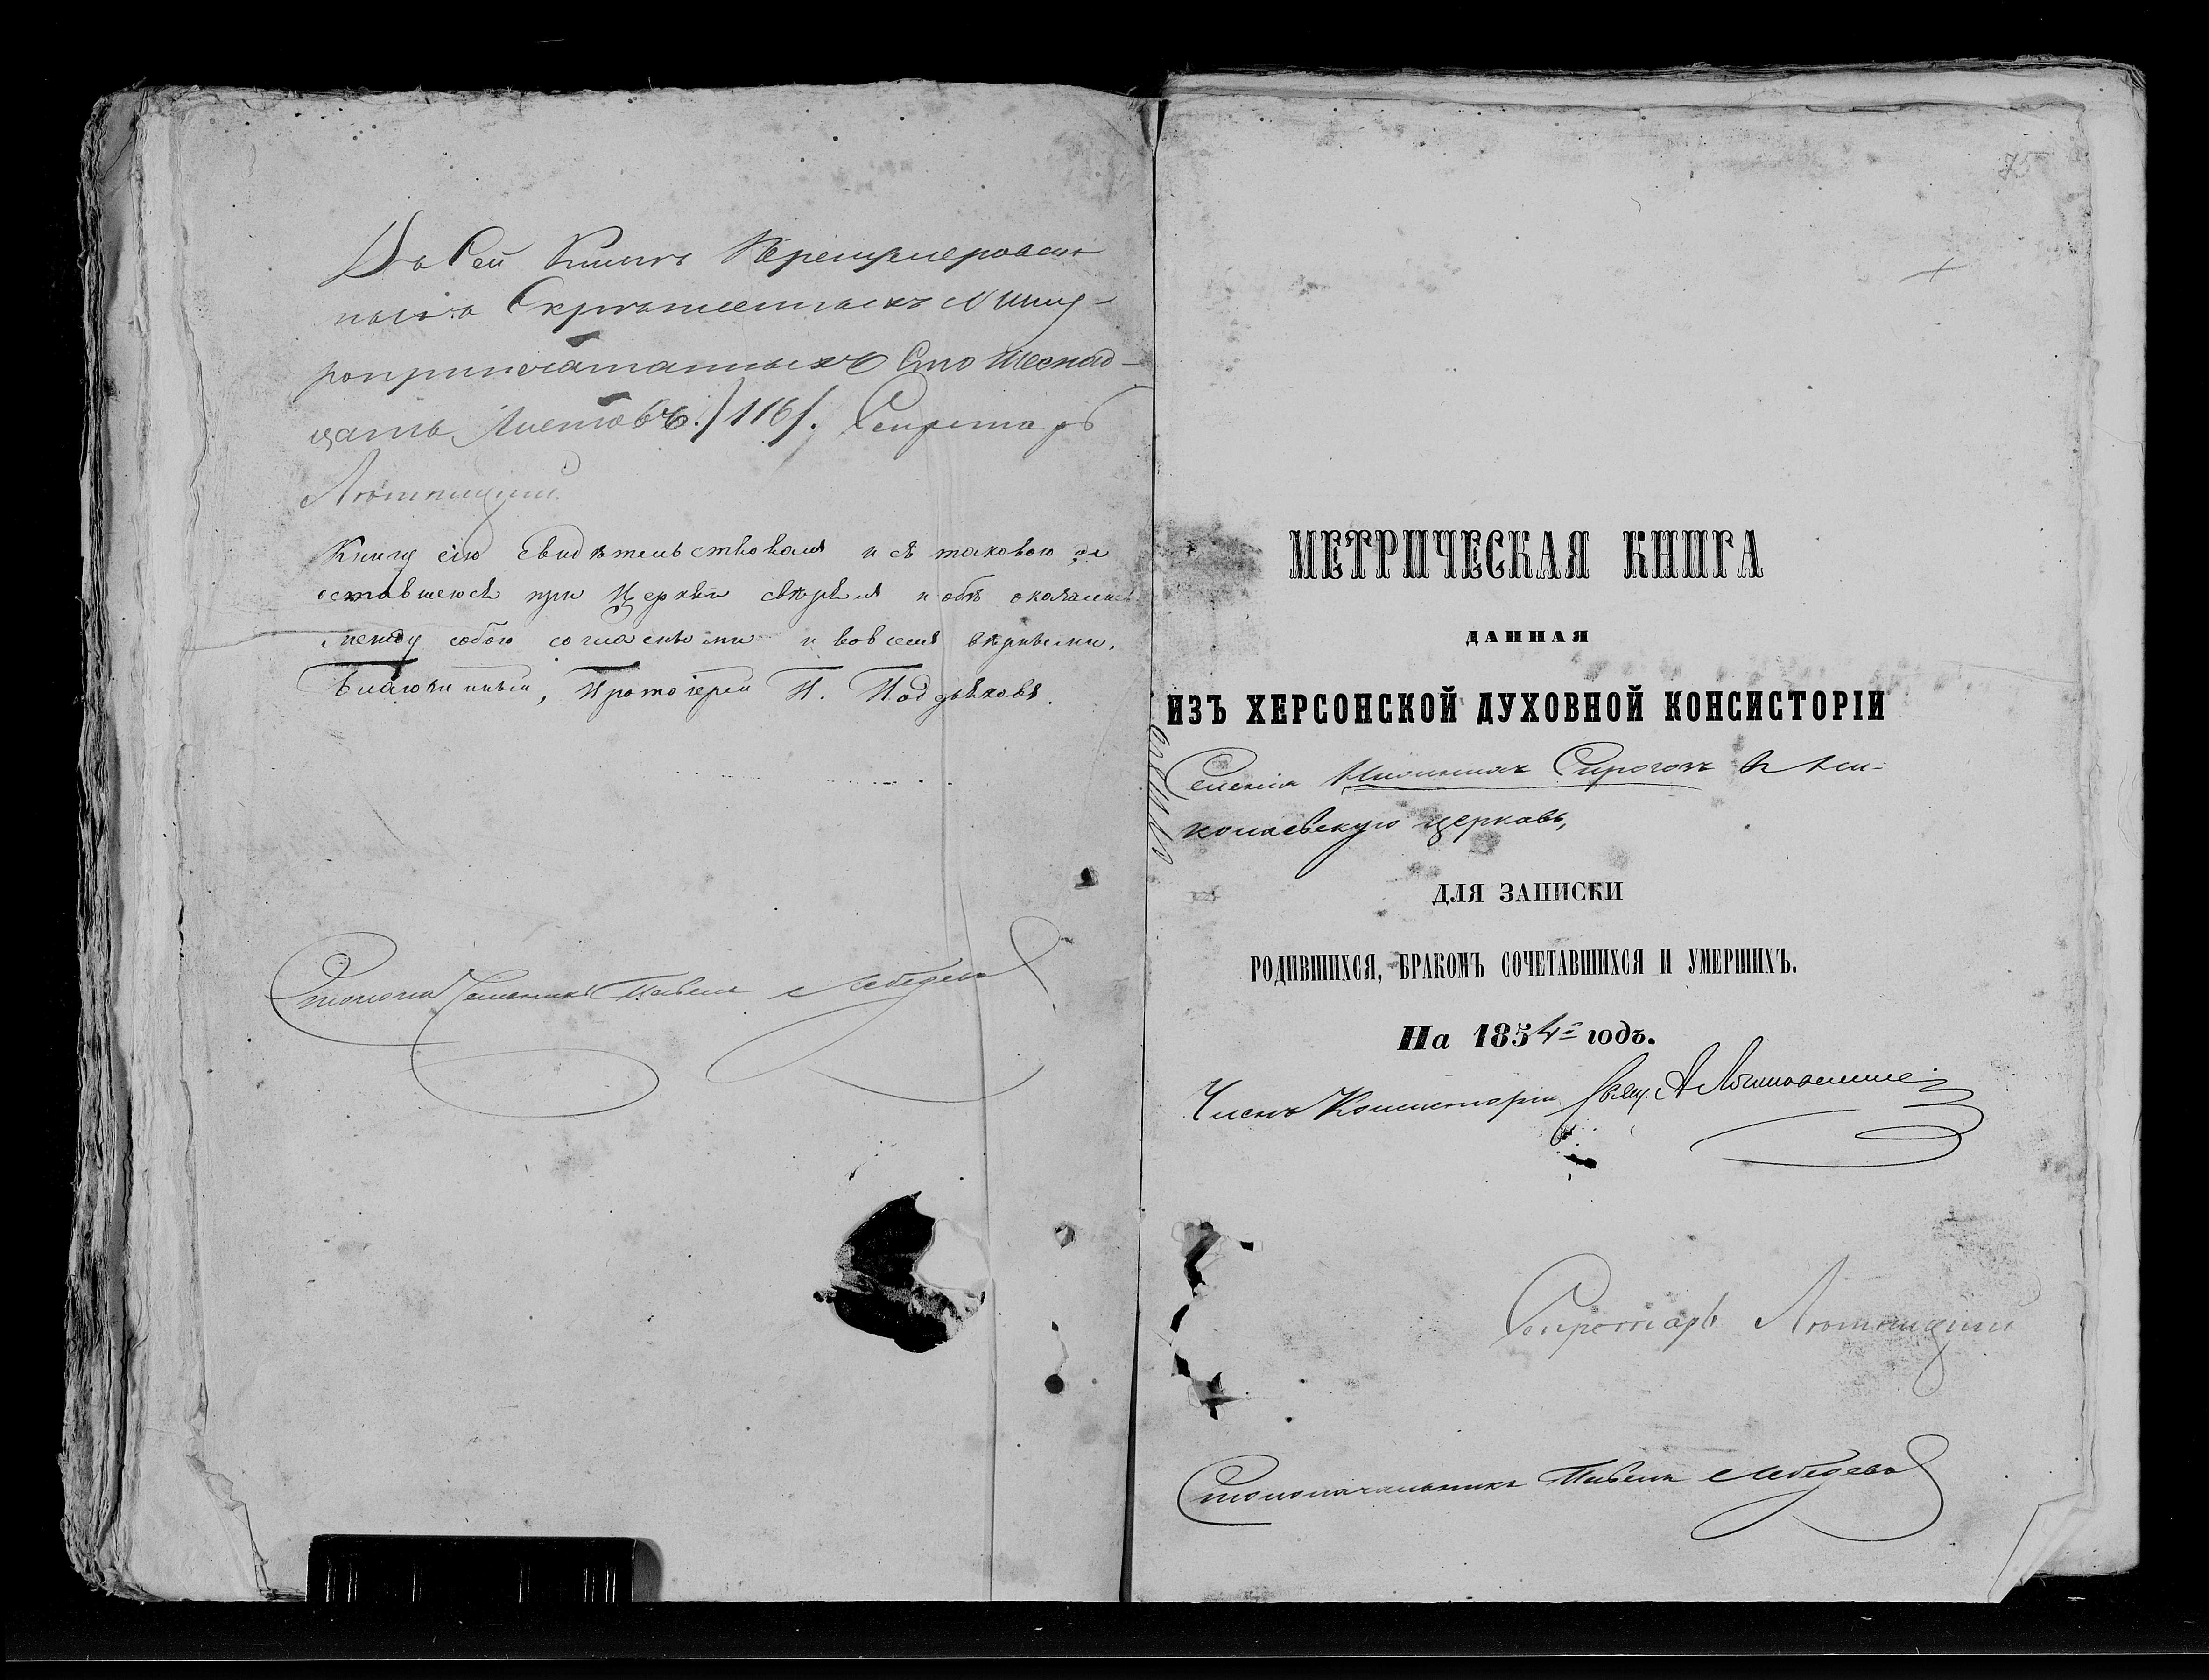 Въ Сей Книгѣ Пренумерован
ныхъ Скрѣпленныхъ и Шну-
роприпечатанныхъ Сто Шеснад-
цать Листовъ /116/. Секретарь
Книгу сію свидѣтельствовалъ и съ таковою же
оставшеюся при Церкви свѣрялъ и обѣ оказались
между собою согласными и во всемъ вѣрными.
Благочинный, Протоіерей П. Поддубковъ.
Столоначальникъ Павелъ Лебедевъ
75
МЕТРИЧЕСКАЯ КНИГА
ДАННАЯ
ИЗЪ ХЕРСОНСКОЙ ДУХОВНОЙ КОНСИСТОРІИ
Селенія Нижнихъ Сирогозъ въ Ни-
колаевскую церковь,
ДЛЯ ЗАПИСКИ
РОДИВШИХСЯ, БРАКОМЪ СОЧЕТАВШИХСЯ И УМЕРШИХЪ.
На 1854й годъ.
Членъ Консисторіи Свящ. А
Секретарь
Столоначальникъ Павелъ Лебедевъ